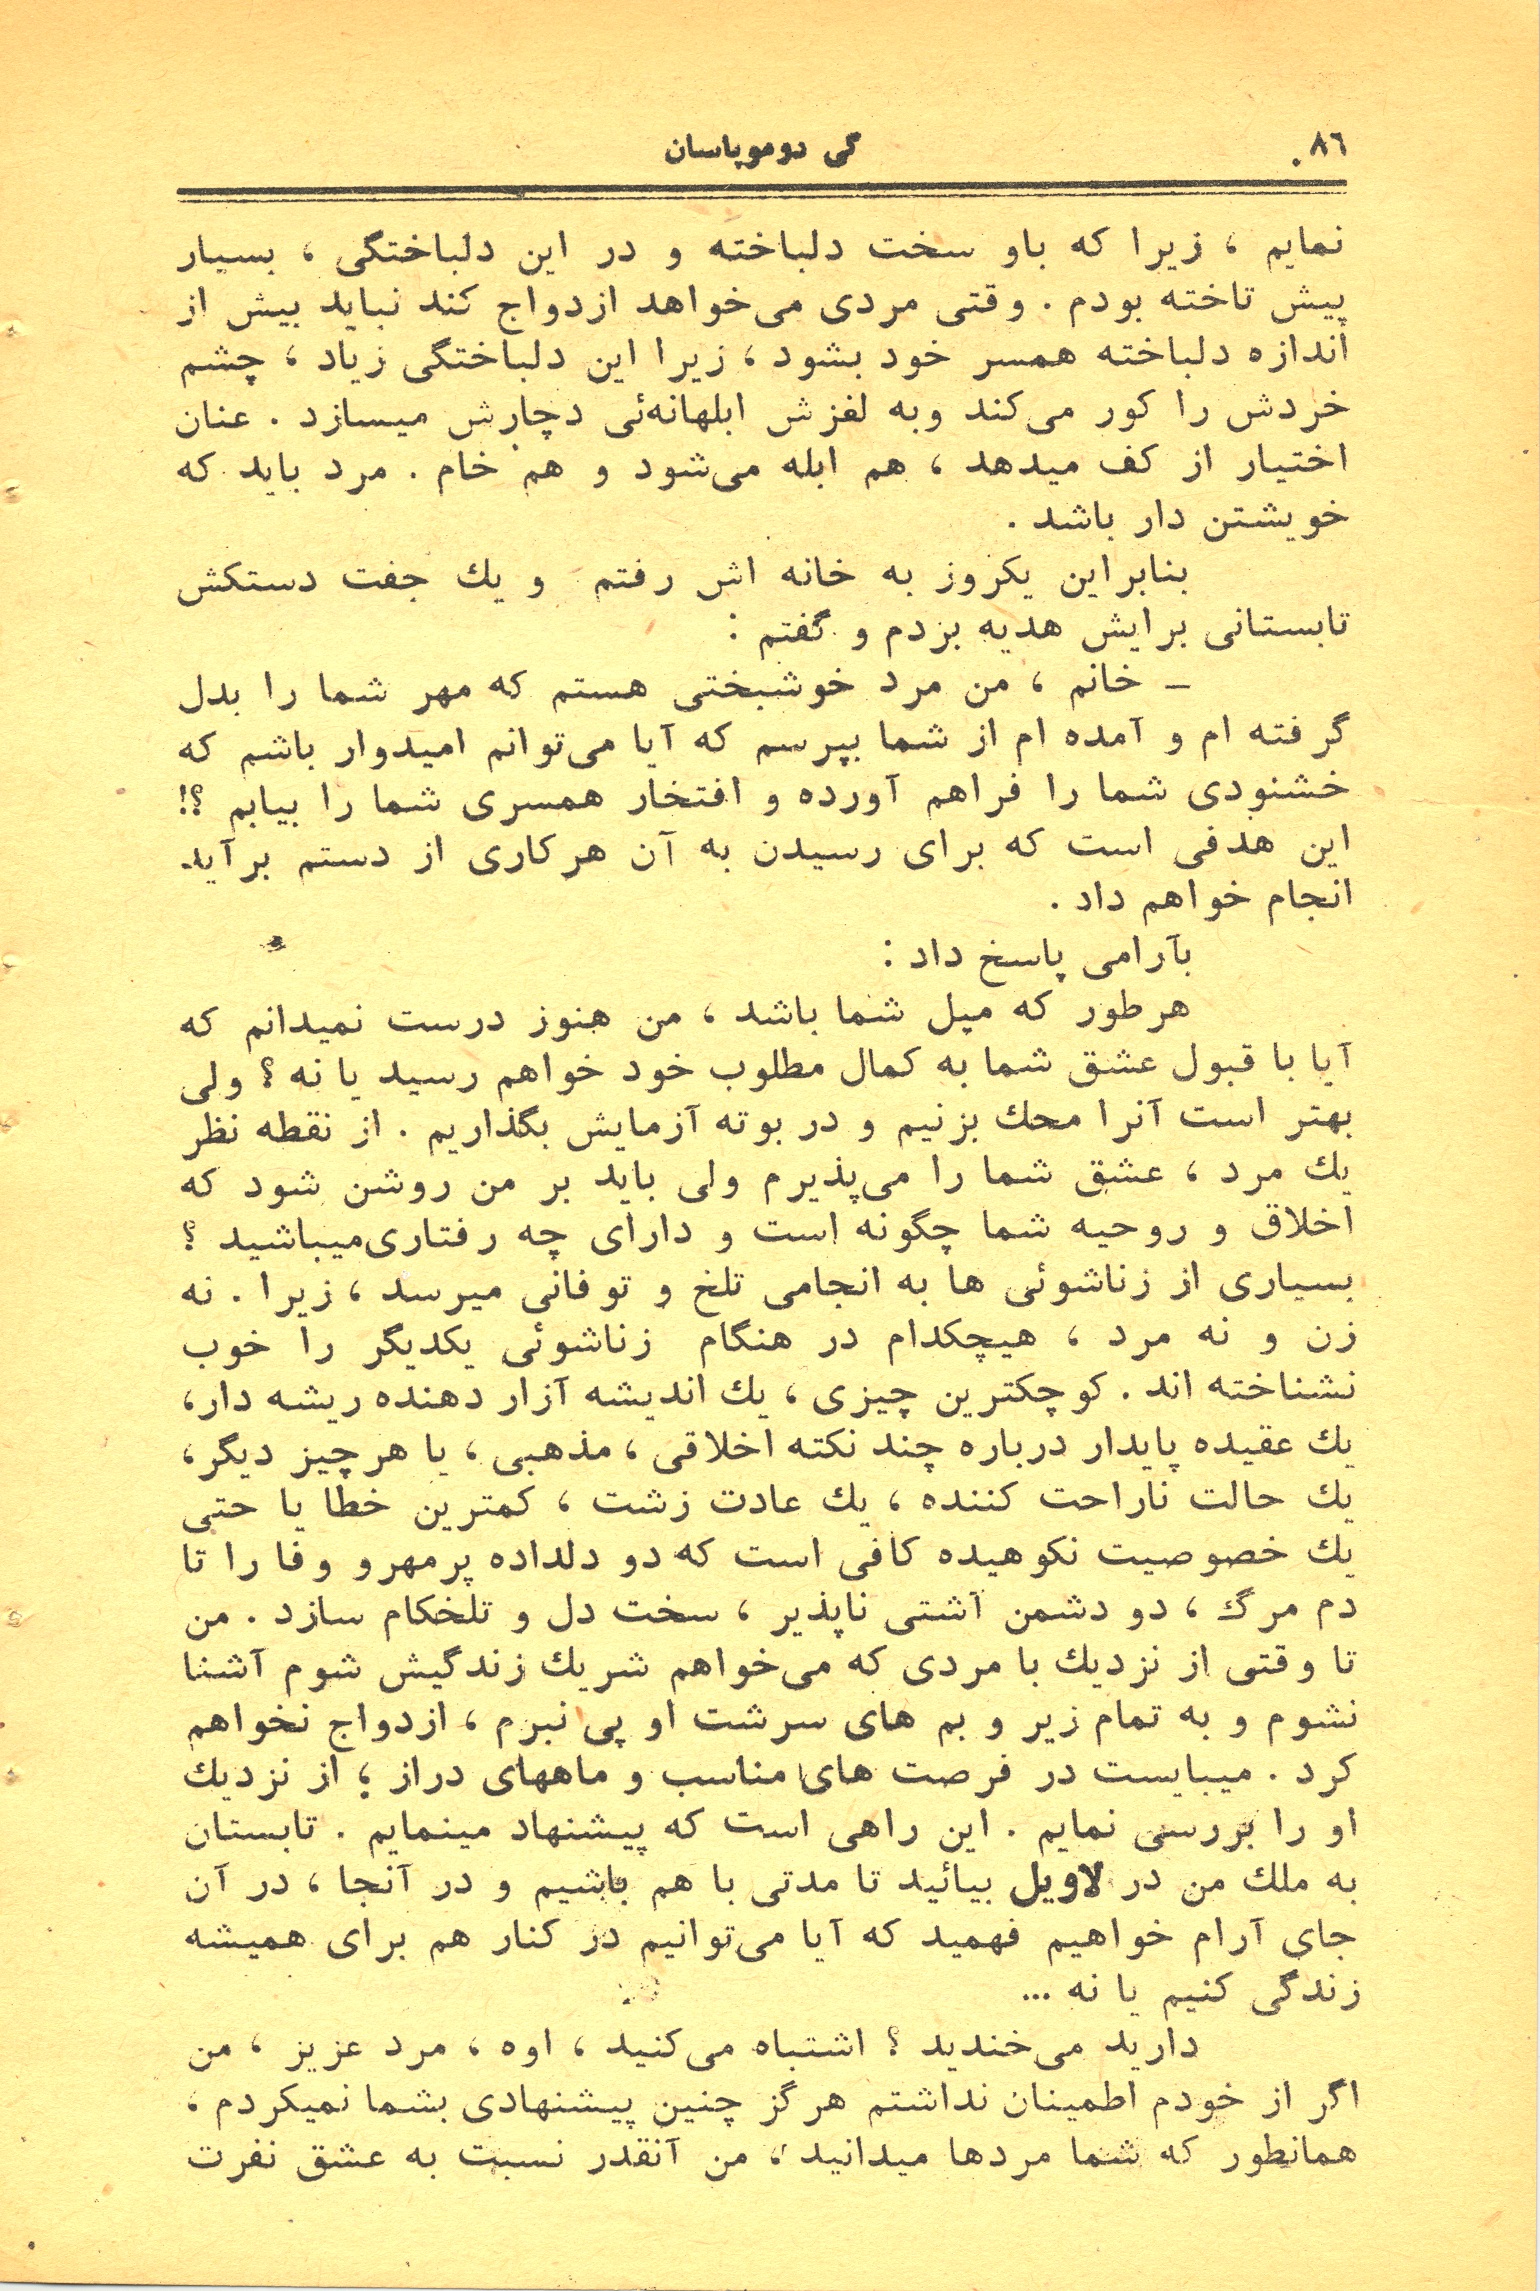 ۸٦
گی دوموپاسان
نمایم ، زیرا که باو سخت دلباخته و در این دلباختگی ، بسیار
پیش تاخته بودم . وقتی مردی می‌خواهد ازدواج کند نباید بیش از
اندازه دلباخته همسر خود بشود ، زیرا این دلباختگی زیاد ، چشم
خردش را کور می‌کند وبه لغزش ابلهانه‌ئی دچارش میسازد . عنان
اختیار از کف میدهد ، هم ابله می‌شود و هم خام . مرد باید که
خویشتن دار باشد .
بنابراین یکروز به خانه اش رفتم و یك جفت دستکش
تابستانی برایش هدیه بردم و گفتم :
ـ خانم ، من مرد خوشبختی هستم که مهر شما را بدل
گرفته ام و آمده ام از شما بپرسم که آیا می‌توانم امیدوار باشم که
خشنودی شما را فراهم آورده و افتخار همسری شما را بیابم ؟!
این هدفی است که برای رسیدن به آن هرکاری از دستم برآید
انجام خواهم داد .
بآرامی پاسخ داد :
هرطور که میل شما باشد ، من هنوز درست نمیدانم که
آیا با قبول عشق شما به کمال مطلوب خود خواهم رسید یا نه ؟ ولی
بهتر است آنرا محك بزنیم و در بوته آزمایش بگذاریم . از نقطه نظر
یك مرد ، عشق شما را می‌پذیرم ولی باید بر من روشن شود که
اخلاق و روحیه شما چگونه است و دارای چه رفتاری‌میباشید ؟
بسیاری از زناشوئی ها به انجامی تلخ و توفانی میرسد ، زیرا . نه
زن و نه مرد ، هیچکدام در هنگام زناشوئی یکدیگر را خوب
نشناخته اند . کوچکترین چیزی ، یك اندیشه آزار دهنده ریشه دار،
یك عقیده پایدار درباره چند نکته اخلاقی ، مذهبی ، یا هرچیز دیگر،
یك حالت ناراحت کننده ، یك عادت زشت ، کمترین خطا یا حتی
یك خصوصیت نکوهیده کافی است که دو دلداده پرمهرو وفا را تا
دم مرگ ، دو دشمن آشتی ناپذیر ، سخت دل و تلخکام سازد . من
تا وقتی از نزدیك با مردی که می‌خواهم شریك زندگیش شوم آشنا
نشوم و به تمام زیر و بم های سرشت او پی نبرم ، ازدواج نخواهم
کرد . میبایست در فرصت های مناسب و ماههای دراز ؛ از نزدیك
او را بررسی نمایم . این راهی است که پیشنهاد مینمایم . تابستان
به ملك من در لاویل بیائید تا مدتی با هم باشیم و در آنجا ، در آن
جای آرام خواهیم فهمید که آیا می‌توانیم در کنار هم برای همیشه
زندگی کنیم یا نه ...
دارید می‌خندید ؟ اشتباه می‌کنید ، اوه ، مرد عزیز ، من
اگر از خودم اطمینان نداشتم هرگز چنین پیشنهادی بشما نمیکردم ،
همانطور که شما مردها میدانید ، من آنقدر نسبت به عشق نفرت